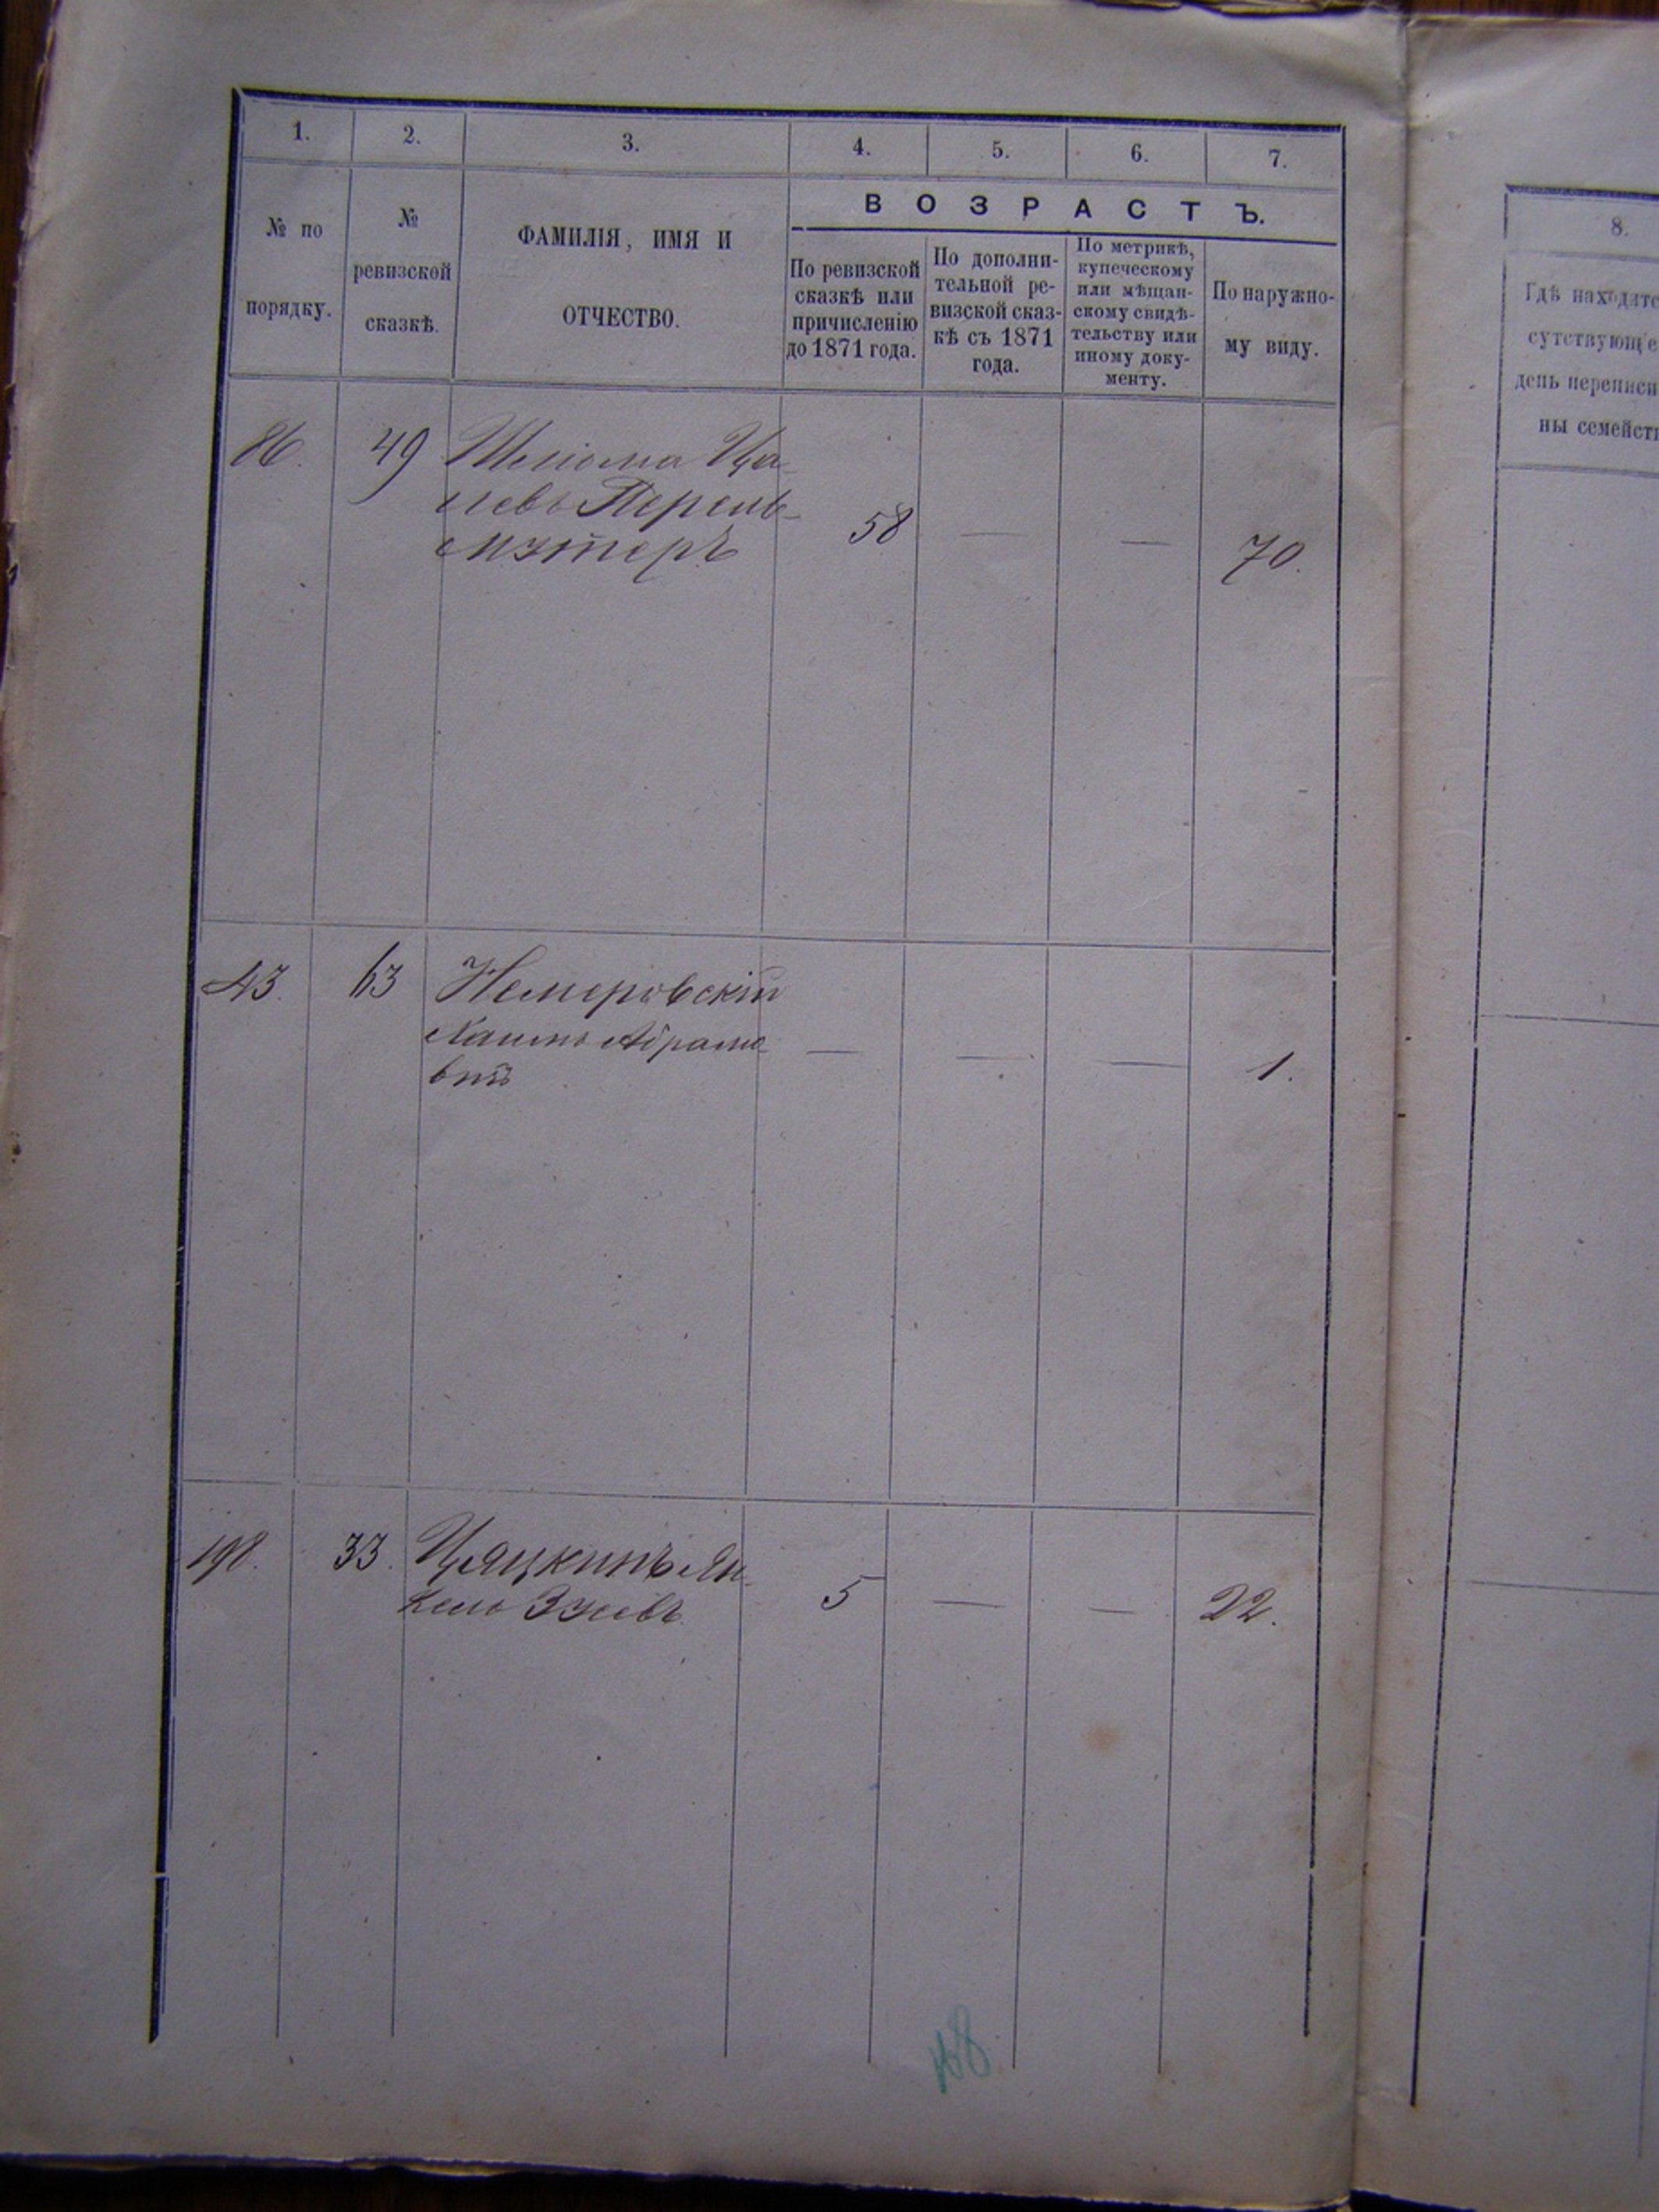 1. 2. 3. 4. 5. 6. 7.
№ по порядку.
№ ревизской сказкѣ.
ФАМИЛІЯ, ИМЯ И
ОТЧЕСТВО.
ВОЗРАСТЪ.
По ревизской
сказкѣ или
причисленію
до 1871 года.
По дополни-
тельной ре-
визской сказ-
кѣ съ 1871
года.
По метрикѣ,
купеческому
или мѣщан-
скому свидѣ-
тельству или
иному доку-
менту.
По наружно-
му виду.
86. 49 Шлiома Ца-
левъ Перель-
мутеръ 58 — — 70.
43. 63 Немеровскій
Хаимъ Абрамо-
вичъ — — — 1.
198. 33. Цяцкинъ Ян-
кель Зусевъ 5 — — 22.
8.
Гдѣ находятс
сутствующіе
день переписи
ны семейств